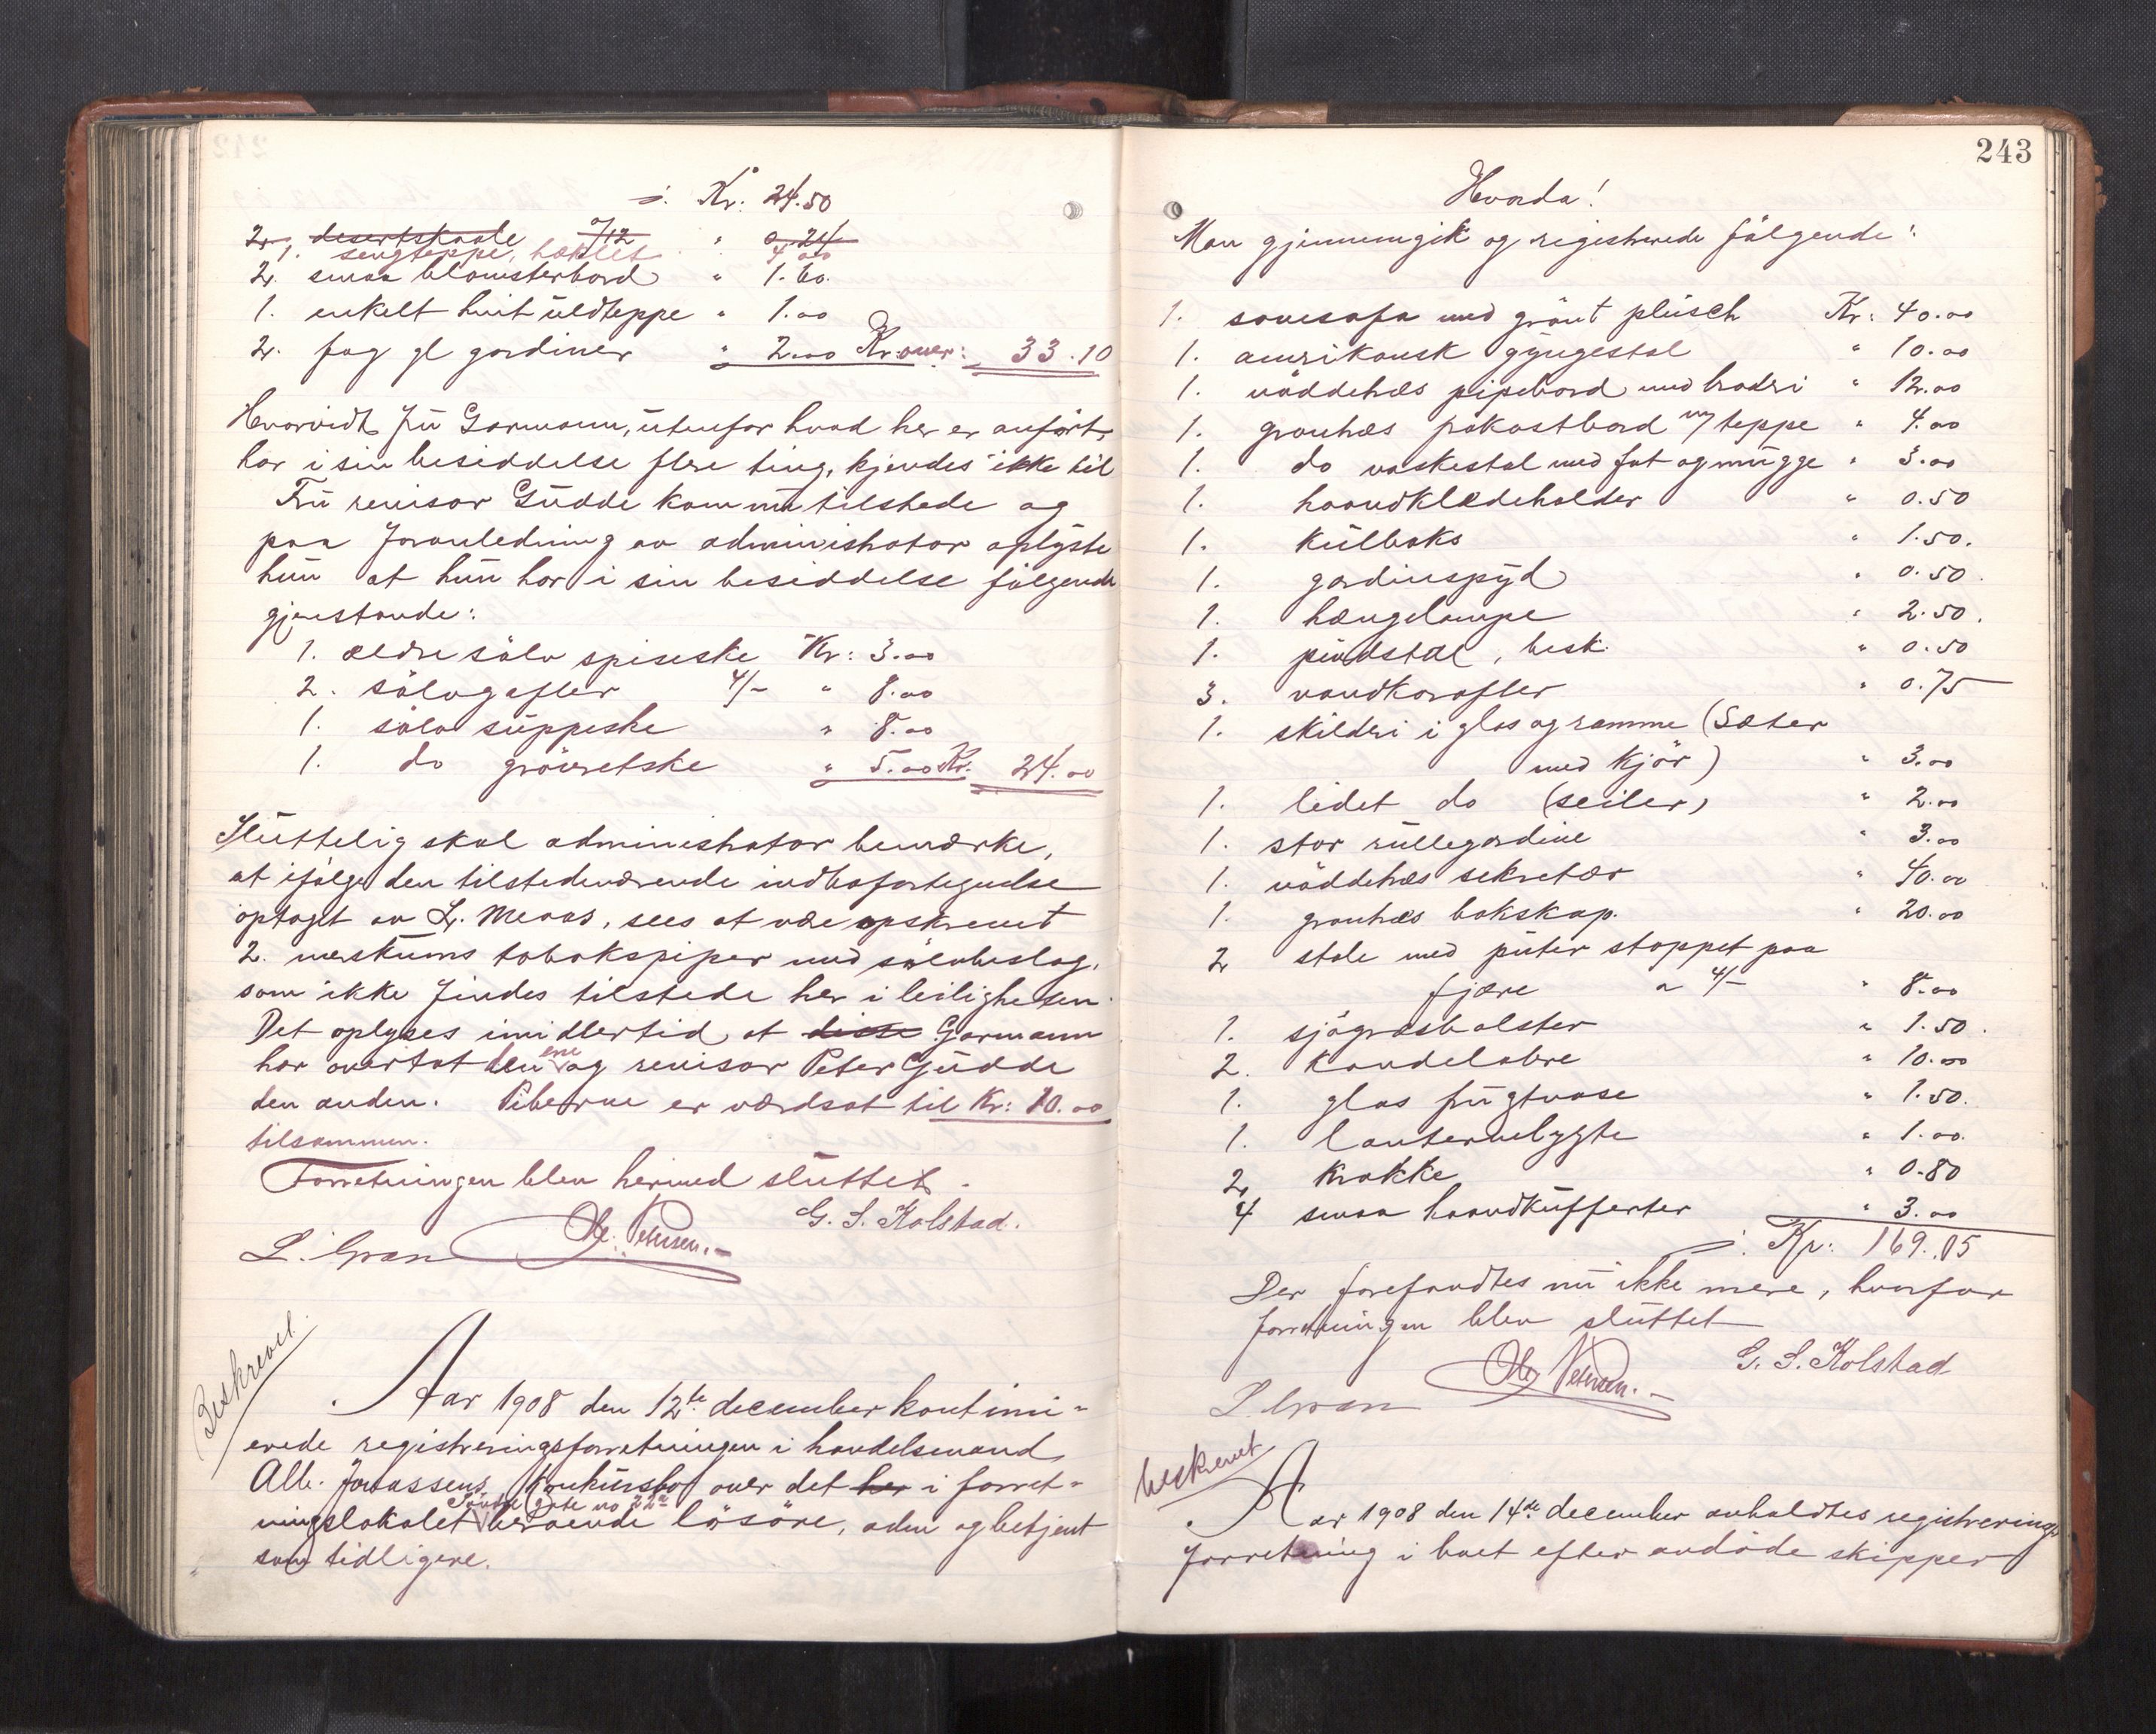 ./. Kr: 24.50
2. desertskaale a/12 " 0.24
1. sengteppe, hæklet " 4.00
2. smaa blomsterbord " 1.60.
1. enkelt hvit uldteppe " 1.00
2. fag gl gardiner " 2.00 Kroner: 33.10
Hvorvidt fru Garmann, utenfor hvad her er anført,
har i sin besiddelse flere ting, kjendes ikke til
Fru revisor Gudde kom nu tilstede og
paa foranledning av administrator oplyste
hun at hun har i sin besiddelse følgende
gjenstande:
1. ældre sølv spiseske Kr: 3.00
2. sølvgafler 4/- " 8.00
1. sølv suppeske " 8.00
1. do grøvretske " 5.00 Kr. 24.00
Sluttelig skal administrator bemærke,
at ifølge den tilstedeværende indbofortegnelse
optaget av L. Meraas, sees at være opskrevet
2. merskums tobakspiper med sølvbeslag,
som ikke findes tilstede her i leiligheten.
Det oplyses imidlertid at disse Garmann
har overtat den ene og revisor Peter Gudde
den anden. Piberne er værdsat til Kr: 10.00
tilsammen.
Forretningen blev hermed sluttet.
G. S. Kolstad.
L. Gran Ole Petersen.
Beskrevet.
Aar 1908 den 12te december kontinu-
erede registreringsforretningen i handelsmand
Alb. Jonassens Konkursbo over det her i forret-
ningslokalet Søndre gate no 22a beroende løsøre, adm og betjent
som tidligere.
243
Hvorda!
Man gjennemgik og registrerede følgende:
1. sovesofa med grønt plusch Kr: 40.00
1. amrikansk gyngestol " 10.00
1. nøddetræs pipebord med broderi " 12.00
1. grantræs frokostbord m/ teppe " 4.00
1. do vaskestol med fat og mugge " 3.00
1. haandklædeholder " 0.50
1. kulboks " 1.50.
1. gardinspyd " 0.50.
1. hængelampe " 2.50.
1. pindstol, besk. " 0.50
3. vandkarafler " 0.75
1. skilderi i glas og ramme (Sæter
med Kjør) " 3.00
1. lidet do (seiler) " 2.00
1. stor rullegardine " 3.00
1. nøddetræs sekretær " 40.00
1. grantræs bokskap. " 20.00
2 stole med puter stoppet paa
fjære a 4/- " 8.00
1. sjøgræsbolster " 1.50.
2. kandelabre " 10.00
1. glas frugtvase " 1.50.
1. lanternelygte " 1.00.
2. krakke " 0.80
4 smaa haandkufferter " 3.00
./. Kr: 169.05
Der forefandtes nu ikke mere, hvorfor
forretningen blev sluttet
G. S. Kolstad
L. Gran Ole Petersen.
beskrevet
Aar 1908 den 14de december avholdtes registrerings
forretning i boet efter avdøde skipper